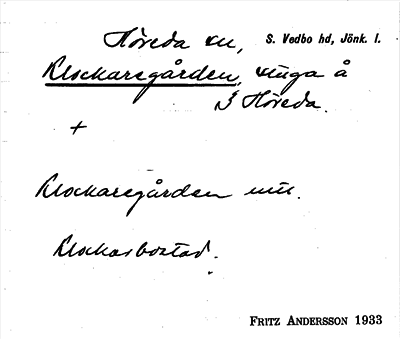 Höreda sn, S. Vedbo hd, Jönk. l.
Klockaregården, äuga å
3 Höreda.
+
Klockaregården mm.
Klockarbostad.
FRITZ ANDERSSON 1933